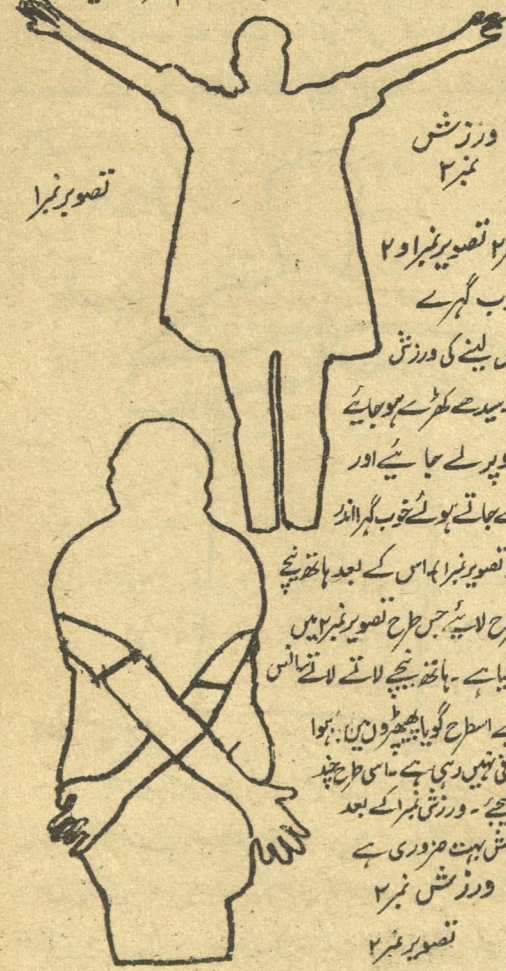 ورزش
نمبر ۲
تصویر نمبر ۱
۲ تصویر نمبر ۱ و ۲
گہرے
لینے کی ورزش
سیدھے کھڑے ہو جایئے
لے جایئے اور
جاتے ہوئے خوب گہرا اندر
تصویر نمبر ۱) اس کے بعد ہاتھ نیچے
لایئے جس طرح تصویر نمبر ۲ میں
ہے ۔ ہاتھ نیچے لاتے لاتے سانس
اسطرح گویا پھیپھڑوں میں ہوا
نہیں رہی ہے ۔ اسی طرح چند
۔ ورزش نمبر ا کے بعد
بہت ضروری ہے
ورزش نمبر ۲
تصویر نمبر ۲